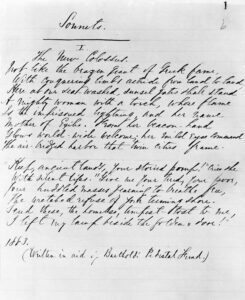 1
Sonnets.
I
The New Colossus.
Not like the brazen giant of Greek fame,
With conquering limbs astride from land to land
Here at our sea-washed, sunset gates shall stand
A mighty woman with a torch, whose flame
Is the imprisoned lightning, and her name
Mother of Exiles. From her beacon-hand
Glows world-wide welcome; her mild eyes command
The air-bridged harbor that twin cities frame.
"Keep, ancient lands, your storied pomp!" cries she
With silent lips. "Give me your tired, your poor,
Your huddled masses yearning to breathe free,
The wretched refuse of your teeming shore.
Send these, the homeless, tempest-tost to me,
I lift my lamp beside the golden door!"
1883.
(Written in aid of Bartholdi Pedestal Fund.)